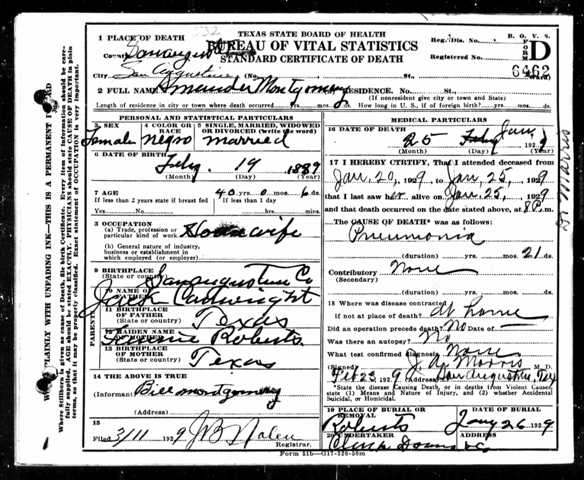 TEXAS STATE BOARD OF HEALTH
BUREAU OF VITAL STATISTICS
STANDARD CERTIFICATE OF DEATH
B. O. V. S.
FORM D
Reg. Dis. No.
Registered No.
6462
1 PLACE OF DEATH
County San Augustine
City San Augustine (No. St.
2 FULL NAME Montgomery RESIDENCE. No. St.
(If nonresident give city or town and State)
Length of residence in city or town where death occurred yrs. mos. How long in U. S., if of foreign birth? yrs. mos.
PERSONAL AND STATISTICAL PARTICULARS
3 SEX 4 COLOR OR RACE 5 SINGLE, MARRIED, WIDOWED OR DIVORCED (write the word)
Female Negro married
6 DATE OF BIRTH
Feby. 19 1889
(Month) (Day) (Year)
7 AGE 40 yrs. 0 mos. 6 ds.
If less than 2 years state if breast fed If less than 1 day
Yes No hrs. min.
8 OCCUPATION
(a) Trade, profession or particular kind of work Housewife
(b) General nature of industry, business or establishment in which employed (or employer)
9 BIRTHPLACE (State or country) San Augustine Co
10 NAME OF FATHER Jack Cartwright
11 BIRTHPLACE OF FATHER (State or country) Texas
12 MAIDEN NAME OF MOTHER Roberts
13 BIRTHPLACE OF MOTHER (State or country) Texas
PARENTS
14 THE ABOVE IS TRUE
(Informant) Bill montgomery
(Address)
15
Filed 3/11 1929 Registrar.
MEDICAL PARTICULARS
16 DATE OF DEATH
25 Feby Jan 1929
(Month) (Day) (Year)
17 I HEREBY CERTIFY, That I attended deceased from
Jan. 20, 1929 to Jan 25, 1929
that I last saw her alive on Jan. 25, 1929
and that death occurred on the date stated above, at 8 P. m.
The CAUSE OF DEATH* was as follows:
Pneumonia
(duration) yrs. mos. 21 ds.
Contributory None
(Secondary)
(duration) yrs. mos. ds.
18 Where was disease contracted
if not at place of death? At home
Did an operation precede death? No Date of
Was there an autopsy? No
What test confirmed diagnosis? None
(Signed) Morris M. D.
Feb 23 1929 (Address) San Augustine, Tex
*State the disease Causing Death, or in deaths from Violent Causes, state (1) Means and Nature of Injury, and (2) whether Accidental, Suicidal, or Homicidal.
19 PLACE OF BURIAL OR REMOVAL DATE OF BURIAL
Roberts Jany 26 1929
20 UNDERTAKER ADDRESS
Clark Downs Co
Form 51b—G17-328-50m
WRITE PLAINLY WITH UNFADING INK—THIS IS A PERMANENT RECORD